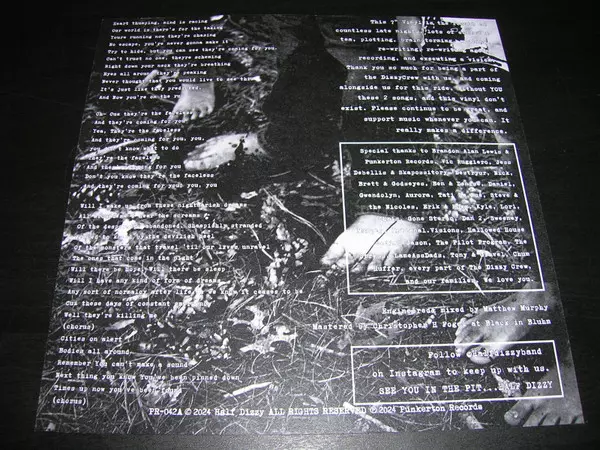 Heart thumping, mind is racing
Our world is there's for the taking
Yours running now they're chasing
No escape, you're never gonna make it
Try to hide, but you can see they're coming for you.
Can't trust no one, they're scheming
Right down your neck they're breathing
Eyes all around they're peaking
Never thought that you would live to see the
It's just like they predicted.
And Now you're on the
Oh- One they're the faceless
And they're coming for you
Yea, They're the faceless
And they're coming for you, you, you
You don't know what to do
They're the faceless
And they're coming for you
Don't you know they're the faceless
And they're coming for you, you, you
Will I wake up from these nightmarish dreams
All over the screams
Of the dead and abandoned. Sheepishly stranded
devilish men
Of the monsters that travel 'til our lives unravel
The ones that come in the night
Will there be hope, Will there be sleep
Will I have any kind of form of dreams
Any sort of screamin' after life as we know it ceases to be
Cuz these days of constant
Well they're killing me
(chorus)
Cities on alert
Bodies all around
Remember You can't make a sound
Next thing you know You've been pinned down
Times up now you've been found
(chorus)
This 7" Vinyl is the
countless late nights, lots of
tea, plotting, brainstorming,
re-writing, re-writing,
recording, and executing a vision.
Thank you so much for being a part of
the DizzyCrew with us, and coming
alongside us for this ride. Without YOU
these 2 songs, and this vinyl don't
exist. Please continue to be great, and
support music whenever you can. It
really makes a difference.
Special thanks to Brandon Alan Lewis &
Punkerton Records, Vin Ruggiero, Jess
Zebellis & Skapository, Westryur, Nick,
Brett & Godseyes, Ben & Daniel,
Gwendolyn, Aurora, Tati Steve &
the Nicoles, Erik Kyle, Lori,
Gone Stereo, Dan Z, Sweeney,
Visions, Hallowed House
Jason, The Pilot Program, The
LameAssDads, Tony & Travel, Chum
Huffer, every part of The Dizzy Crew,
and our families. We love you.
Engineered & mixed by Matthew Murphy
Mastered by Christopher H Fogel at Black in Bluhm
Follow @halfdizzyband
on Instagram to keep up with us.
SEE YOU IN THE PIT...HALF DIZZY
PR-042A © 2024 Half Dizzy ALL RIGHTS RESERVED ℗ 2024 Punkerton Records